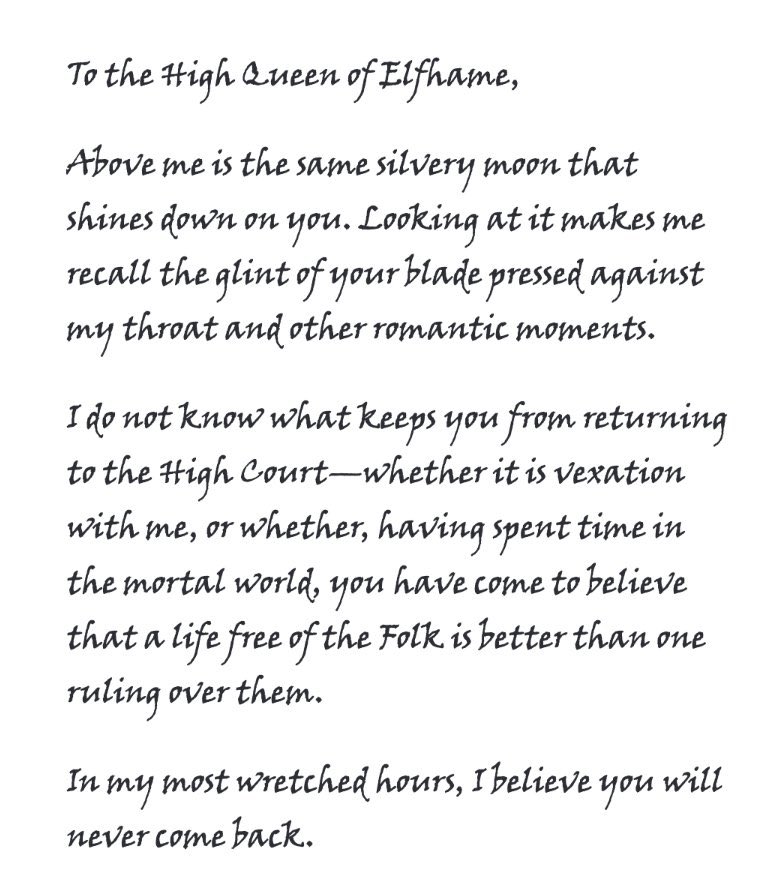 To the High Queen of Elfhame,
Above me is the same silvery moon that
shines down on you. Looking at it makes me
recall the glint of your blade pressed against
my throat and other romantic moments.
I do not know what keeps you from returning
to the High Court—whether it is vexation
with me, or whether, having spent time in
the mortal world, you have come to believe
that a life free of the Folk is better than one
ruling over them.
In my most wretched hours, I believe you will
never come back.